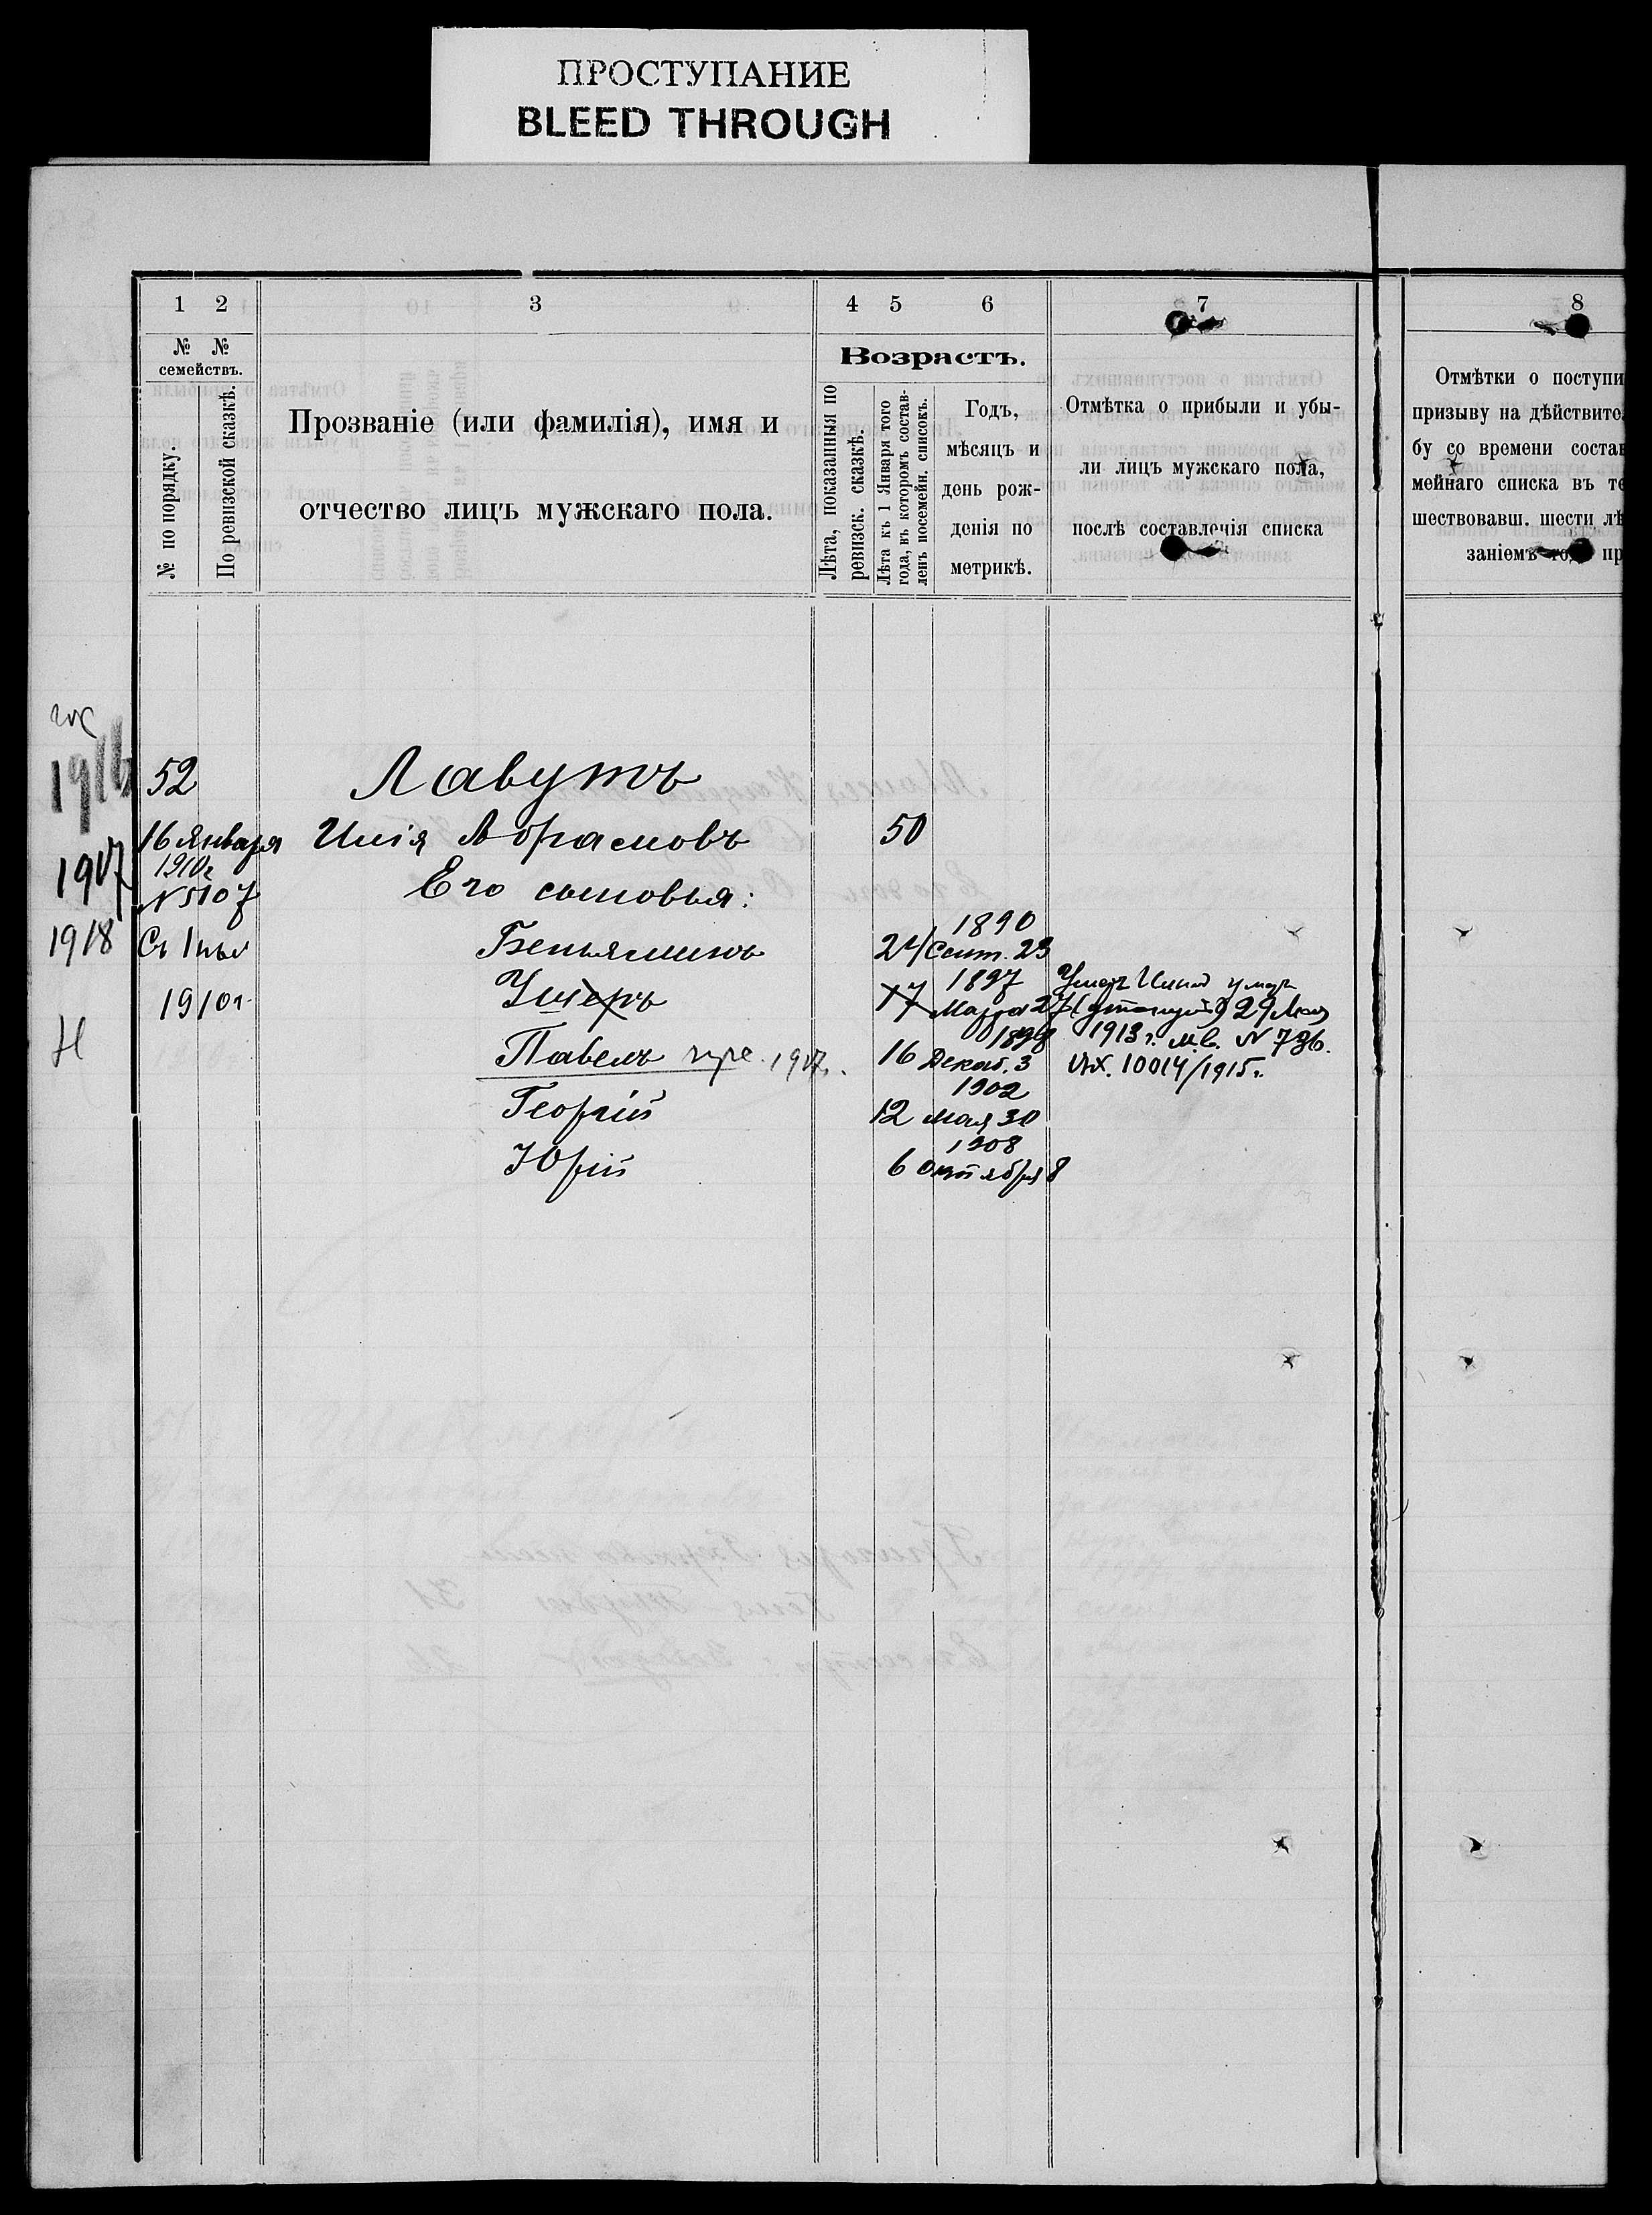 ПРОСТУПАНИЕ
BLEED THROUGH
1 2 3 4 5 6 7 8
№ №
семействъ.
№ по порядку.
По ревизской сказкѣ.
Прозваніе (или фамилія), имя и
отчество лицъ мужскаго пола.
Возрастъ.
Лѣта, показанныя по
ревизск. сказкѣ.
Лѣта къ 1 Января того
года, въ которомъ состав-
ленъ посемейн. списокъ.
Годъ,
мѣсяцъ и
день рож-
денія по
метрикѣ.
Отмѣтка о прибыли и убы-
ли лицъ мужскаго пола,
послѣ составленія списка
Отмѣтки о поступи
призыву на дѣйствите
бу со времени состав
мейнаго списка въ те
шествовавш. шести лѣ
заніемъ года пр
1916
52 Лавутъ
16 Января Илія Абрамовъ 50
1910г
1917 № 5107 Его сыновья:
1890
1918 Съ Беньяминъ 24 Сент. 23
1897
1910г. Ушеръ 17 Марта 27
Ушеръ умеръ
29
1913 г. м.в. № 736.
1898
Павелъ 1917. 16 Декаб. 3
Вх. 10014/1915г.
1902
Георгій 12 мая 30
1908
Юрій 6 октября 8
Н